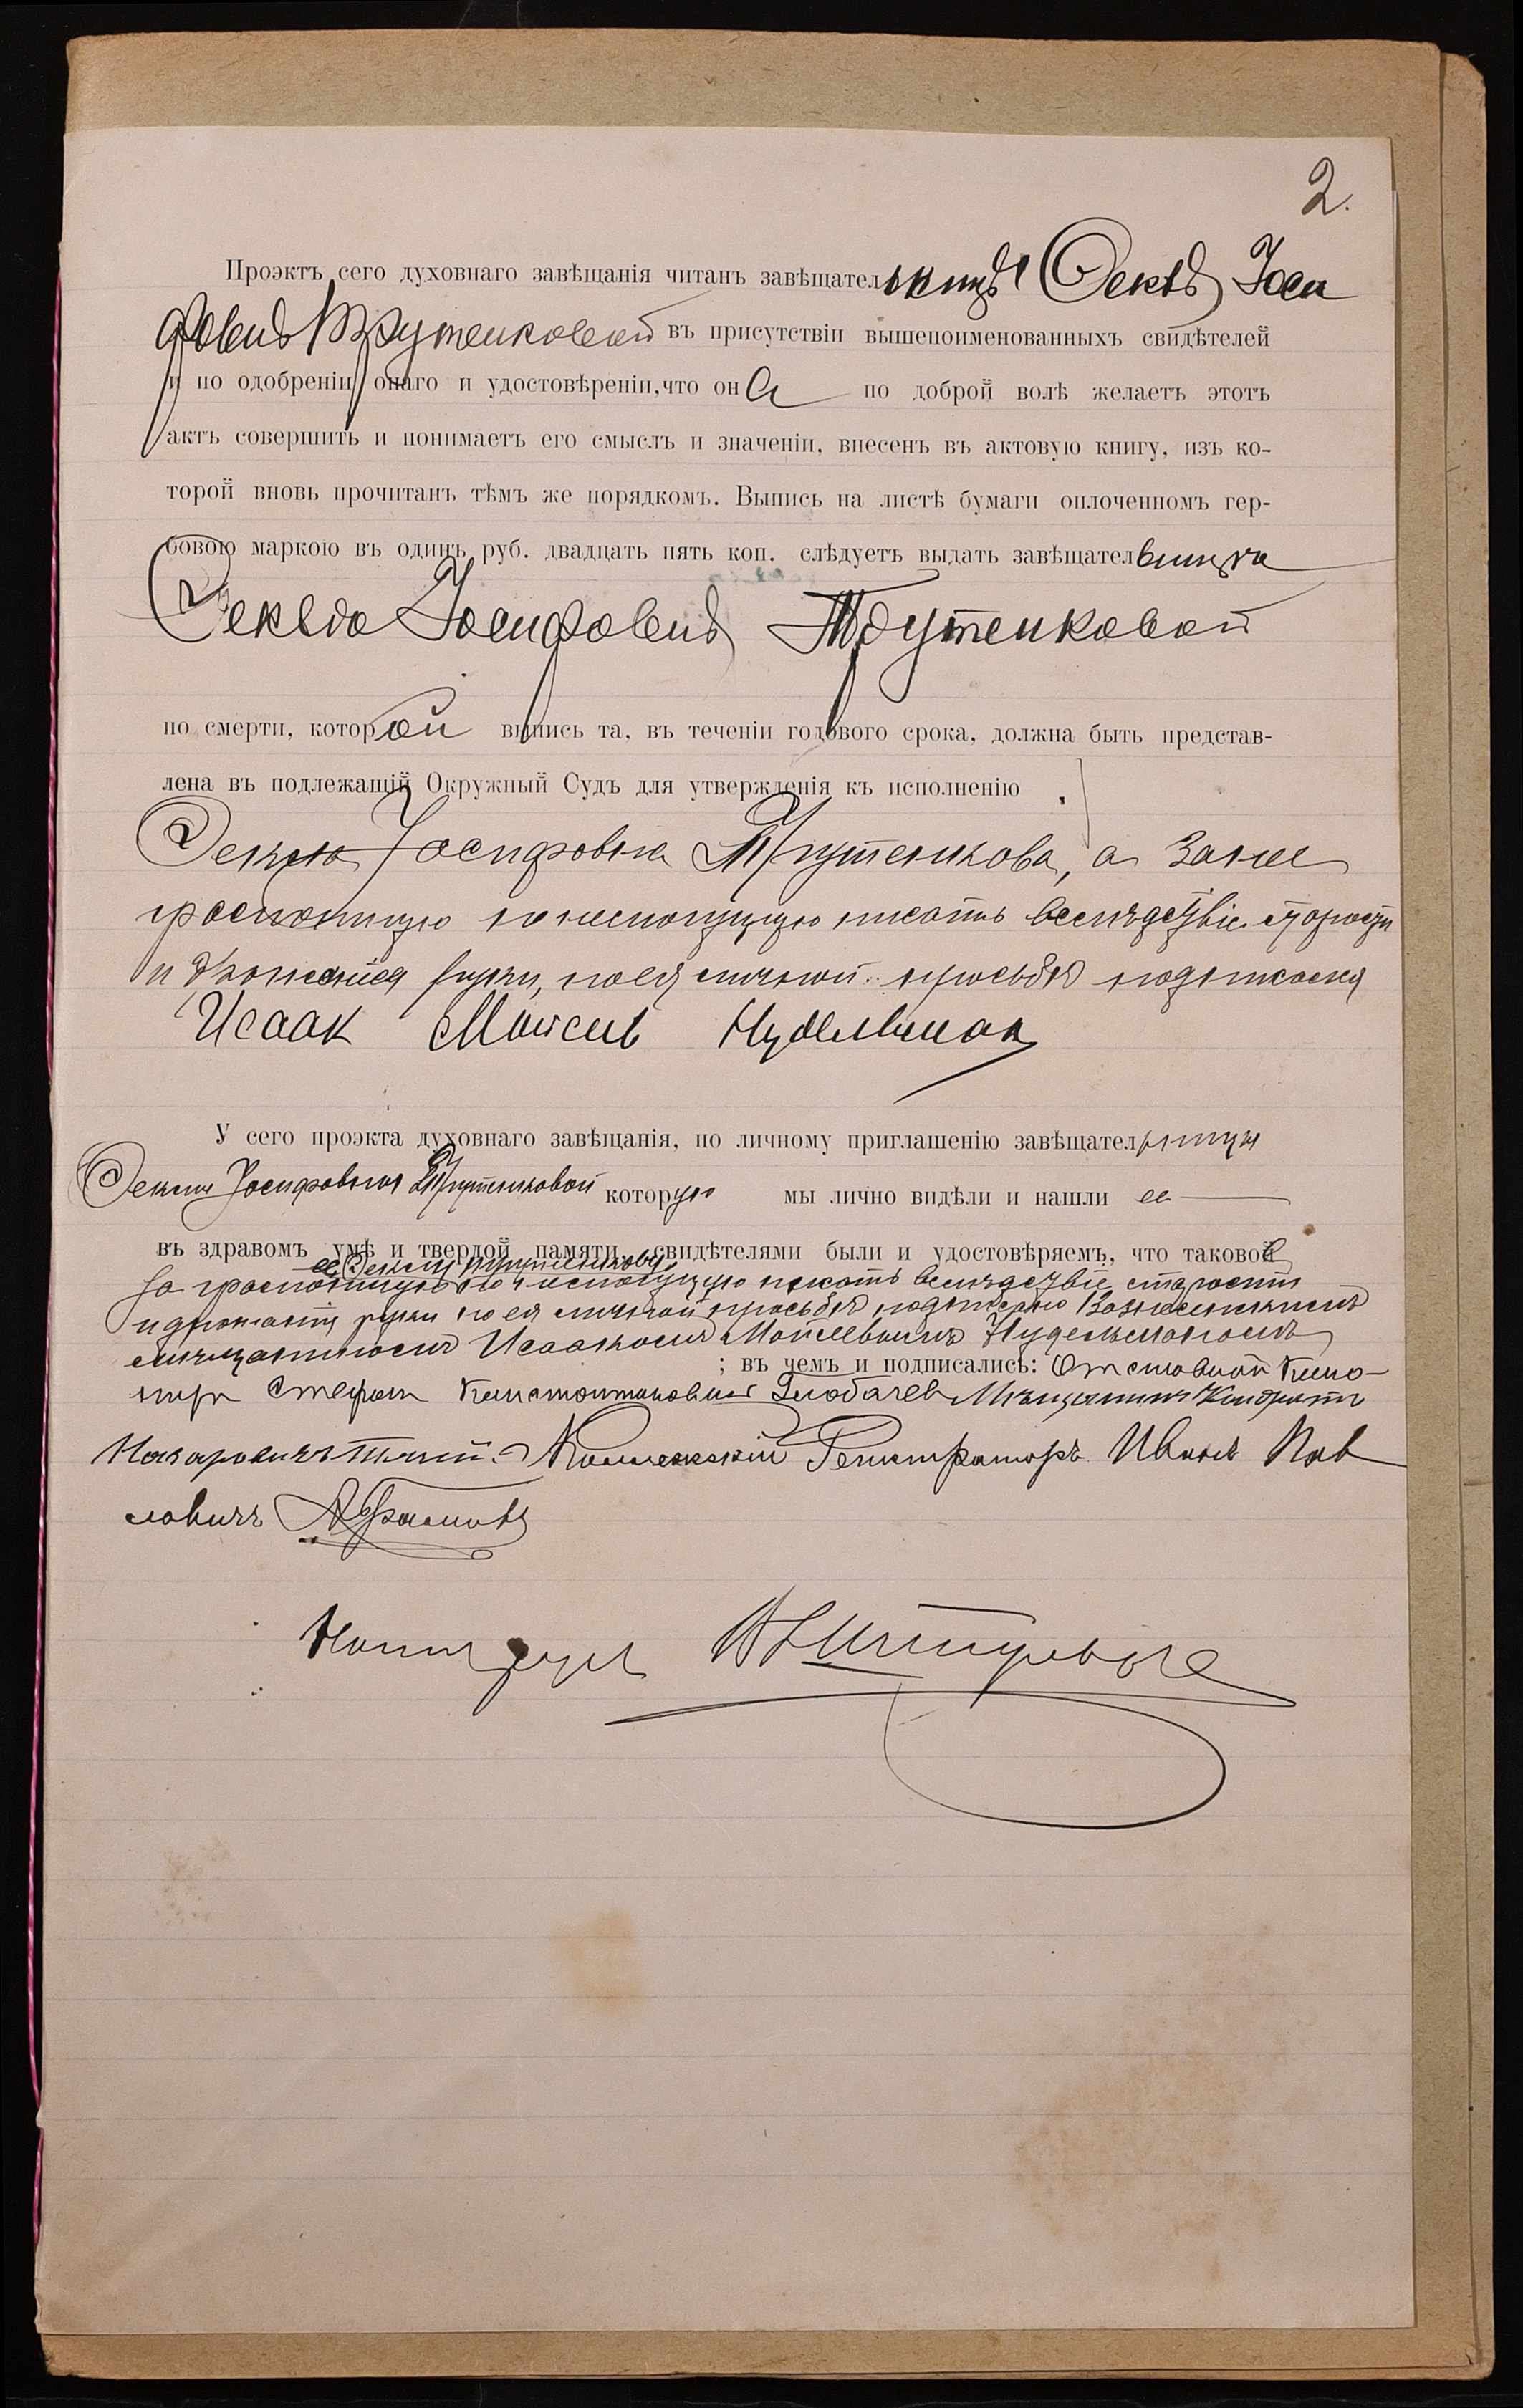 2.
Проэктъ сего духовнаго завѣщанія читанъ завѣщательницѣ Ѳеклѣ Іоси
фовнѣ Трутенковой въ присутствіи вышепоименованныхъ свидѣтелей
и по одобреніи онаго и удостовѣреніи, что она по доброй волѣ желаетъ этотъ
актъ совершить и понимаетъ его смыслъ и значеніи, внесенъ въ актовую книгу, изъ ко-
торой вновь прочитанъ тѣмъ же порядкомъ. Выпись на листѣ бумаги оплоченномъ гер-
бовою маркою въ одинъ руб. двадцать пять коп. слѣдуетъ выдать завѣщательница
Ѳеклѣ Іосифовнѣ Трутенковой
по смерти, которой выпись та, въ теченіи годоваго срока, должна быть представ-
лена въ подлежащій Окружный Судъ для утвержденія къ исполненію.
Ѳекла Іосифовна Трутенкова, а за нее
грамотную но немогущую писать вслѣдствіе старости
и дрожанія руки, по ея личной просьбѣ подписался
Исаак Моисеев Нудельман
У сего проэкта духовнаго завѣщанія, по личному приглашенію завѣщательницы
Ѳеклы Іосифовны Трутенковой которую мы лично видѣли и нашли ее
въ здравомъ умѣ и твердой памяти, свидѣтелями были и удостовѣряемъ, что таковой
ее Ѳеклу Трутенкову
за грамотную но немогущую писать вслѣдствіе старости
и дрожанія руки по ея личной просьбѣ подписано Вознесенскимъ
мѣщаниномъ Исаакомъ Моисеевымъ Нудельманомъ
; въ чемъ и подписались: Отставной Кано-
ниръ Стефан Константиновичъ Глобачев Мѣщанинъ Кондратъ
Назаровичъ Коллежскій Регистраторъ Иванъ Пав
ловичъ Абрамовъ
Нотаріусъ